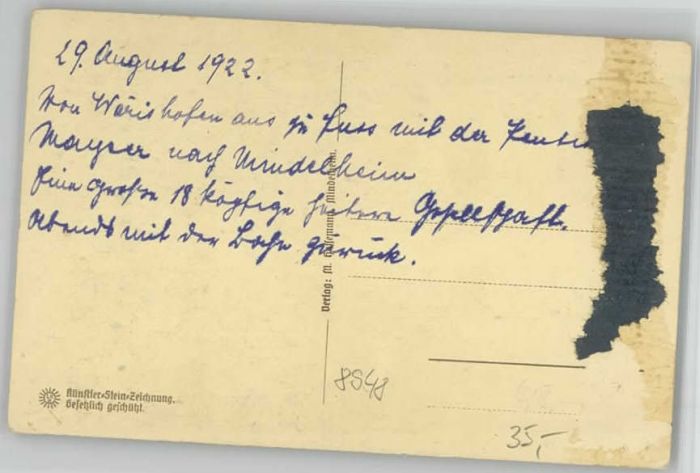 29. August 1922.
Von Wörishofen aus zu Fuss mit der
Mayser nach Mindelheim
Eine große 18 köpfige heitere Gesellschaft.
Abends mit der Bahn zurück.
Verlag: M. Mindelheim.
Künstler=Stein=Zeichnung.
Gesetzlich geschützt.
8548
35,-